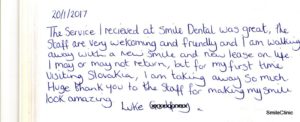 20/1/2017
The Service I recieved at Smile Dental was great, the
Staff are very welcoming and friendly and I am walking
away with a new smile and new lease on life
I may or may not return, but for my first time
Visiting Slovakia, I am taking away so much
Huge thank you to the staff for making my smile
look amazing Luke
SmileClinic